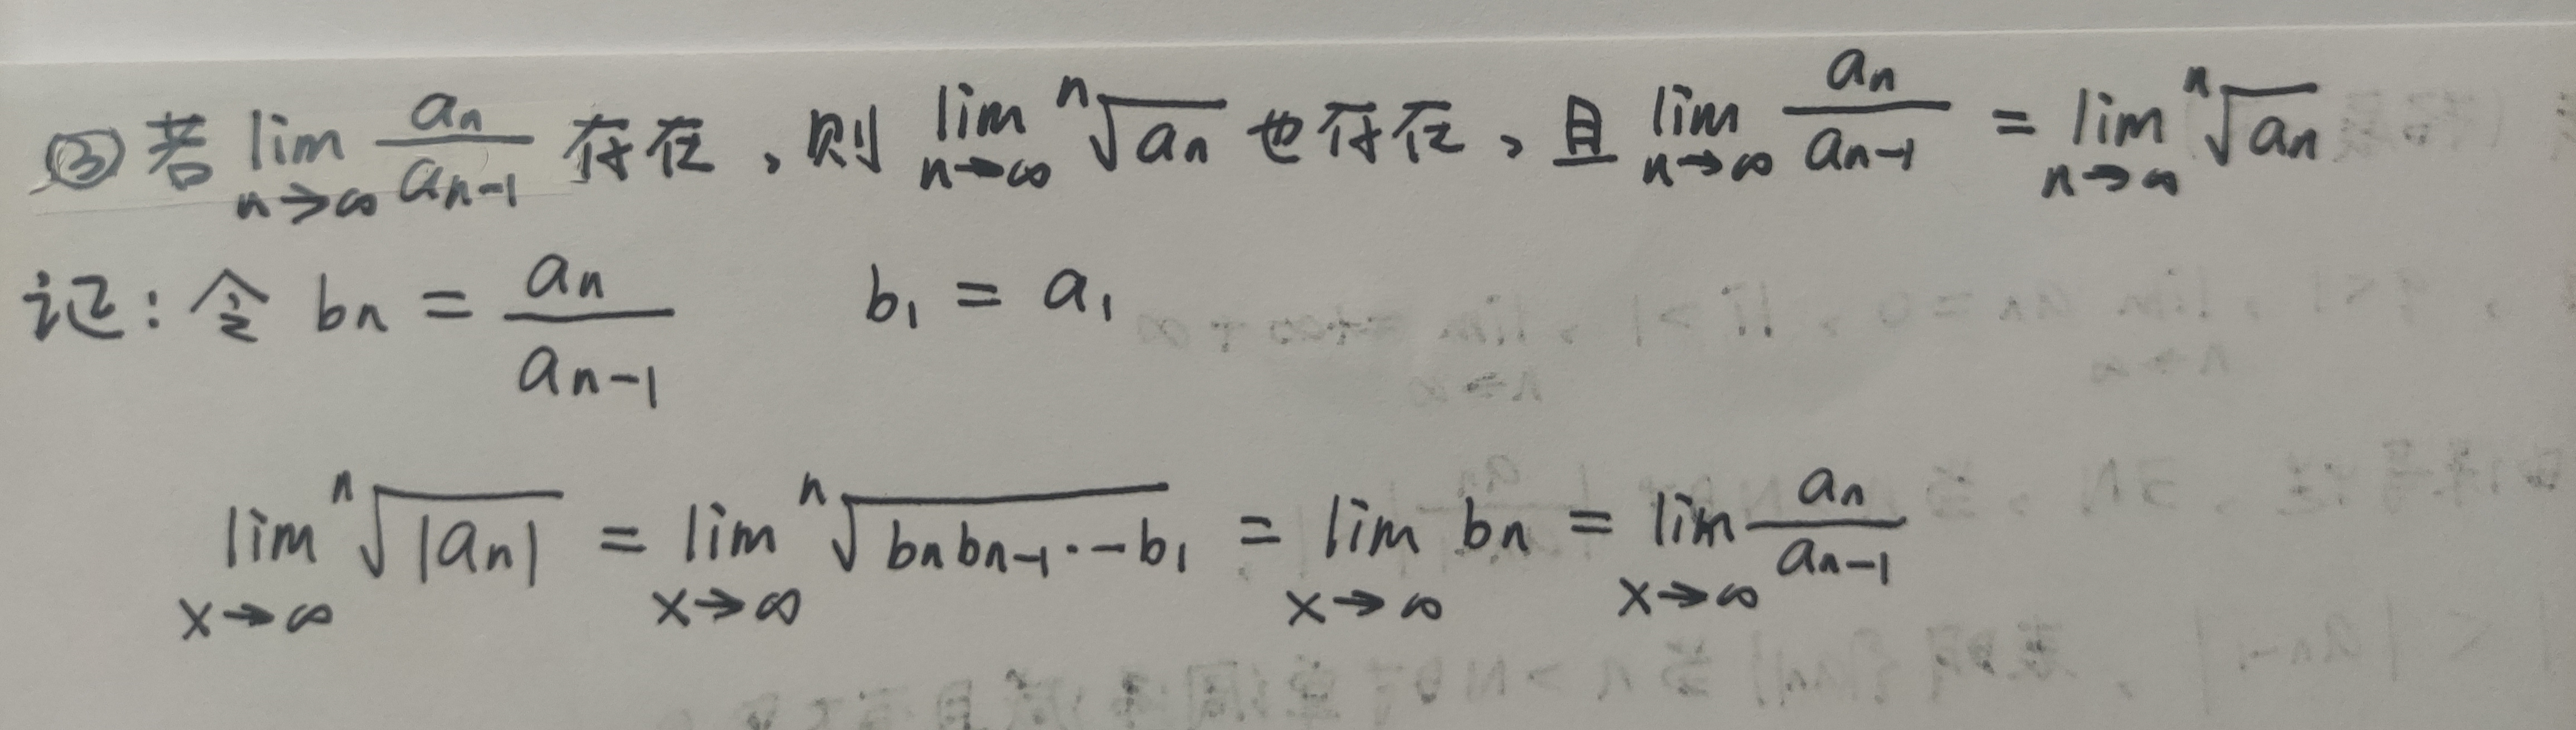 ③ 若 lim n→∞ an/an-1 存在，则 lim n→∞ ⁿ√an 也存在，且 lim n→∞ an/an-1 = lim n→∞ ⁿ√an
记：令 bn = an/an-1  b1 = a1
lim x→∞ ⁿ√|an| = lim x→∞ ⁿ√bnbn-1·--b1 = lim x→∞ bn = lim x→∞ an/an-1